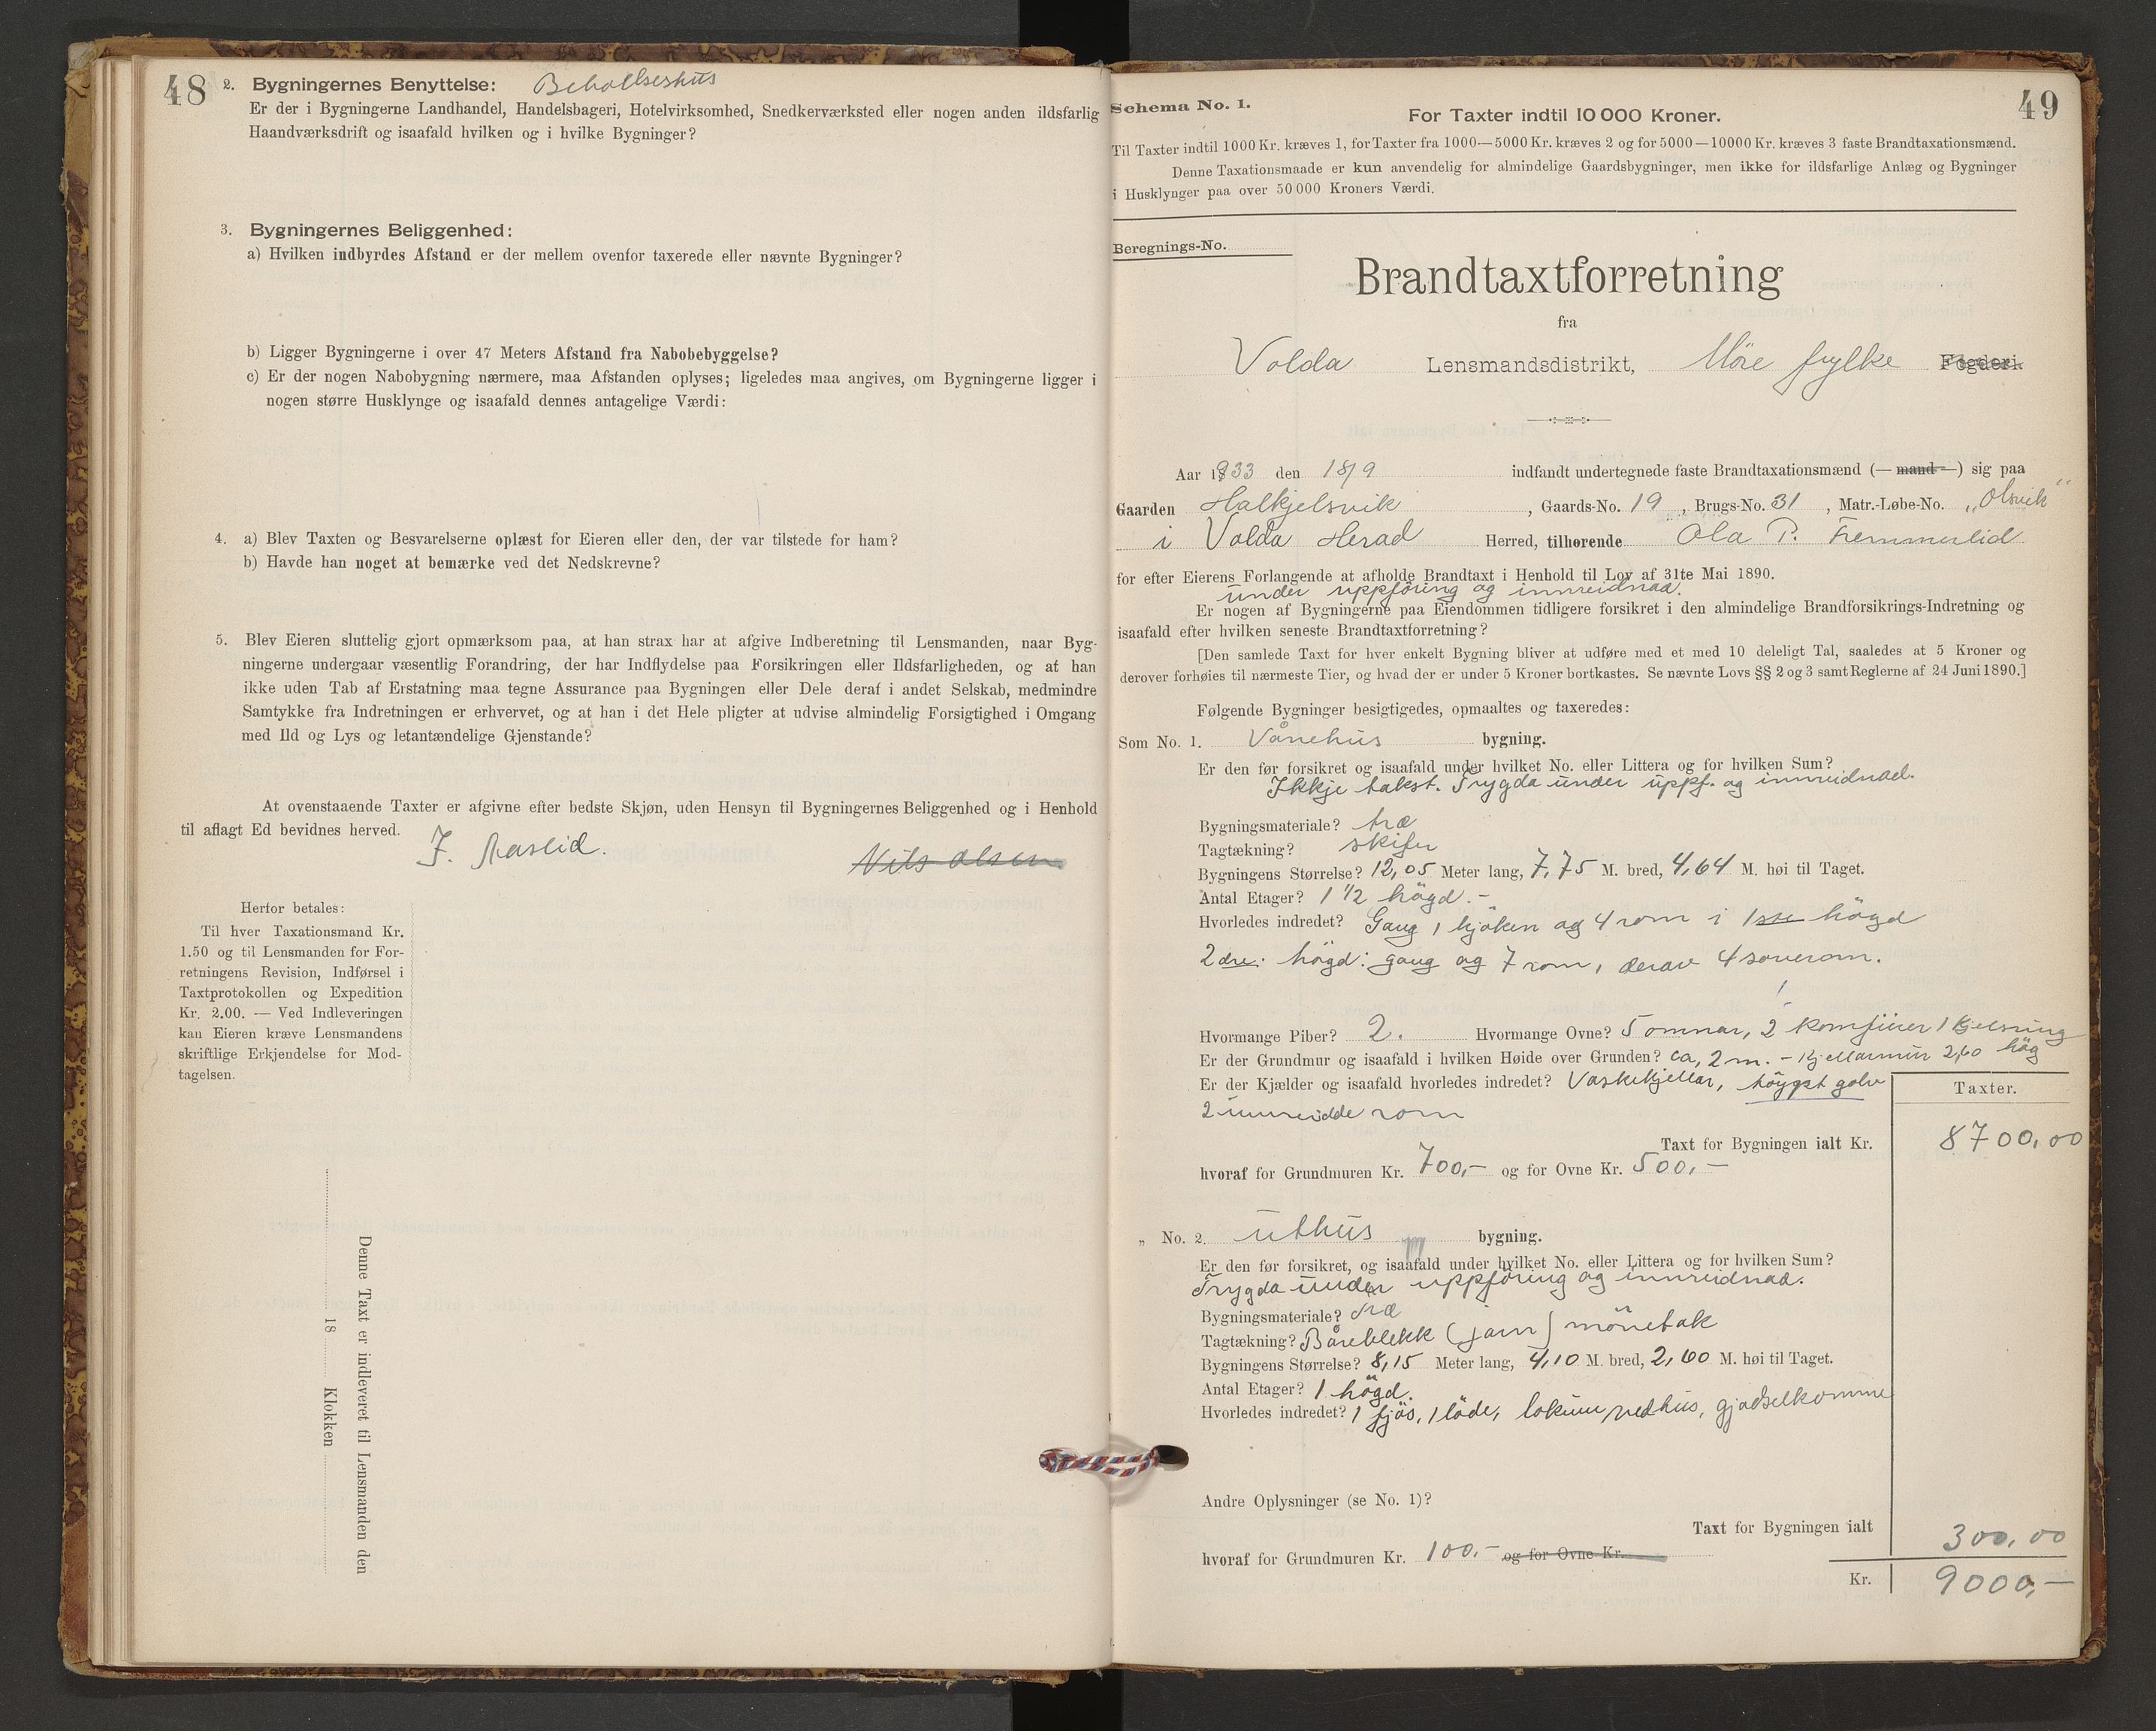 48
2. Bygningernes Benyttelse: Beboelseshus
Er der i Bygningerne Landhandel, Handelsbageri, Hotelvirksomhed, Snedkerværksted eller nogen anden ildsfarlig
Haandværksdrift og isaafald hvilken og i hvilke Bygninger?
3. Bygningernes Beliggenhed:
a) Hvilken indbyrdes Afstand er der mellem ovenfor taxerede eller nævnte Bygninger?
b) Ligger Bygningerne i over 47 Meters Afstand fra Nabobebyggelse?
c) Er der nogen Nabobygning nærmere, maa Afstanden oplyses; ligeledes maa angives, om Bygningerne ligger i
nogen større Husklynge og isaafald dennes antagelige Værdi:
4. a) Blev Taxten og Besvarelserne oplæst for Eieren eller den, der var tilstede for ham?
b) Havde han noget at bemærke ved det Nedskrevne?
5. Blev Eieren sluttelig gjort opmærksom paa, at han strax har at afgive Indberetning til Lensmanden, naar Byg-
ningerne undergaar væsentlig Forandring, der har Indflydelse paa Forsikringen eller Ildsfarligheden, og at han
ikke uden Tab af Erstatning maa tegne Assurance paa Bygningen eller Dele deraf i andet Selskab, medmindre
Samtykke fra Indretningen er erhvervet, og at han i det Hele pligter at udvise almindelig Forsigtighed i Omgang
med Ild og Lys og letantændelige Gjenstande?
At ovenstaaende Taxter er afgivne efter bedste Skjøn, uden Hensyn til Bygningernes Beliggenhed og i Henhold
til aflagt Ed bevidnes herved.
J. Aaslid. Nils Olsen
Herfor betales:
Til hver Taxationsmand Kr.
1.50 og til Lensmanden for For-
retningens Revision, Indførsel i
Taxtprotokollen og Expedition
Kr. 2.00. — Ved Indleveringen
kan Eieren kræve Lensmandens
skriftlige Erkjendelse for Mod-
tagelsen.
Denne Taxt er indleveret til Lensmanden den
18 Klokken
49
Schema No. 1.
For Taxter indtil 10 000 Kroner.
Til Taxter indtil 1000 Kr. kræves 1, for Taxter fra 1000—5000 Kr. kræves 2 og for 5000—10000 Kr. kræves 3 faste Brandtaxationsmænd.
Denne Taxationsmaade er kun anvendelig for almindelige Gaardsbygninger, men ikke for ildsfarlige Anlæg og Bygninger
i Husklynger paa over 50 000 Kroners Værdi.
Beregnings-No.
Brandtaxtforretning
fra
Volda Lensmandsdistrikt, Möre fylke Fogderi
Aar 1933 den 18/9 indfandt undertegnede faste Brandtaxationsmænd (— mand —) sig paa
Gaarden Halkjelsvik, Gaards-No. 19, Brugs-No. 31, Matr.-Løbe-No. „Olsvik"
i Volda Herad Herred, tilhørende Ola P. Fremmerlid
for efter Eierens Forlangende at afholde Brandtaxt i Henhold til Lov af 31te Mai 1890.
under uppföring og innreidnad.
Er nogen af Bygningerne paa Eiendommen tidligere forsikret i den almindelige Brandforsikrings-Indretning og
isaafald efter hvilken seneste Brandtaxtforretning?
[Den samlede Taxt for hver enkelt Bygning bliver at udføre med et med 10 deleligt Tal, saaledes at 5 Kroner og
derover forhøies til nærmeste Tier, og hvad der er under 5 Kroner bortkastes. Se nævnte Lovs §§ 2 og 3 samt Reglerne af 24 Juni 1890.]
Følgende Bygninger besigtigedes, opmaaltes og taxeredes:
Som No. 1. Vånehus bygning.
Er den før forsikret og isaafald under hvilket No. eller Littera og for hvilken Sum?
Ikkje takst. Trygda under uppf. og innreidnad.
Bygningsmateriale? træ
Tagtækning? skifer
Bygningens Størrelse? 12,05 Meter lang, 7,75 M. bred, 4,64 M. høi til Taget.
Antal Etager? 1 1/2 högd. -
Hvorledes indredet? Gang, kjöken og 4 rom i 1ste högd
2dre. högd: gang og 7 rom, derav 4 soverom.
Hvormange Piber? 2. Hvormange Ovne? 5 omnar, 2 komfürer 1
Er der Grundmur og isaafald i hvilken Høide over Grunden? ca, 2 m. - kjellarmur 2,60 høg
Er der Kjælder og isaafald hvorledes indredet? Vaskekjellar, stöypt golv
2 innreidde rom
Taxter.
Taxt for Bygningen ialt Kr. 8700,00
hvoraf for Grundmuren Kr. 700,- og for Ovne Kr. 500,-
„ No. 2. uthus bygning.
Er den før forsikret, og isaafald under hvilket No. eller Littera og for hvilken Sum?
Trygda under uppföring og innreidnad.
Bygningsmateriale? træ
Tagtækning? Båreblekk (jarn) mönetak
Bygningens Størrelse? 8,15 Meter lang, 4,10 M. bred, 2,60 M. høi til Taget.
Antal Etager? 1 högd.
Hvorledes indredet? 1 fjös, 1 löde, lokum, vedhus,
Andre Oplysninger (se No. 1)?
Taxt for Bygningen ialt 300,00
hvoraf for Grundmuren Kr. 100.- og for Ovne Kr.
Kr. 9000,-